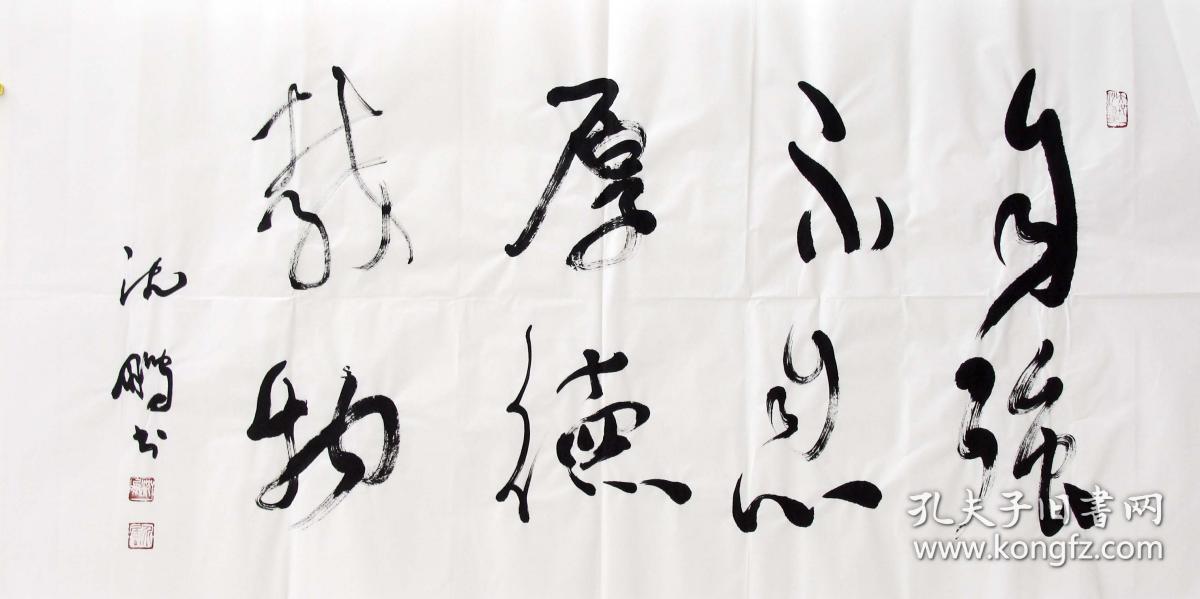 自强
不息
厚德
载物
沈鹏书
孔夫子旧書网
www.kongfz.com